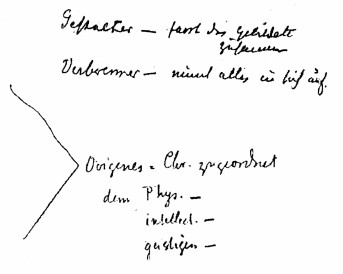 Gestalter — fasst das Gebildete
zusammen
Verbrenner — nimmt alles in sich auf.
Origenes = Chr. zugeordnet
dem Phys. —
intellect. —
geistigen —